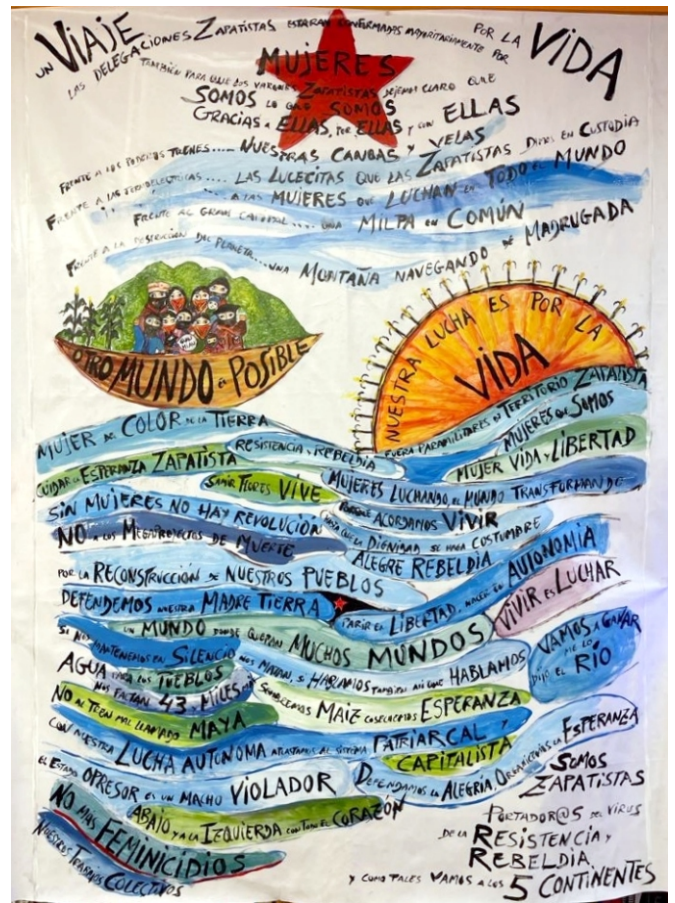 UN VIAJE POR LA VIDA
LAS DELEGACIONES ZAPATISTAS ESTARÁN CONFORMADAS MAYORITARIAMENTE POR
MUJERES
TAMBIÉN PARA QUE LOS VARONES ZAPATISTAS DEJEMOS CLARO QUE
SOMOS LO QUE SOMOS
GRACIAS A ELLAS, POR ELLAS Y CON ELLAS
FRENTE A LOS TRENES.... NUESTRAS CANOAS Y VELAS
FRENTE A LAS .... LAS LUCECITAS QUE LAS ZAPATISTAS DIMOS EN CUSTODIA
A LAS MUJERES QUE LUCHAN EN TODO EL MUNDO
FRENTE AL GRAN CAPITAL.... UNA MILPA EN COMÚN
FRENTE A LA DESTRUCCIÓN DEL PLANETA...UNA MONTAÑA NAVEGANDO DE MADRUGADA
OTRO MUNDO ES POSIBLE
NUESTRA LUCHA ES POR LA
VIDA
FUERA PARAMILITARES DE TERRITORIO ZAPATISTA
MUJER DEL COLOR DE LA TIERRA
MUJERES QUE SOMOS
RESISTENCIA Y REBELDÍA
MUJER VIDA Y LIBERTAD
CUIDAR LA ESPERANZA ZAPATISTA
SAMIR FLORES VIVE
MUJERES LUCHANDO, EL MUNDO TRANSFORMANDO
SIN MUJERES NO HAY REVOLUCIÓN
PORQUE ACORDAMOS VIVIR
NO A LOS MEGAPROYECTOS DE MUERTE
HASTA QUE LA DIGNIDAD SE HAGA COSTUMBRE
ALEGRE REBELDÍA
POR LA RECONSTRUCCIÓN DE NUESTROS PUEBLOS
DEFENDEMOS NUESTRA MADRE TIERRA
PARIR EL LIBERTAD, NACER EN AUTONOMÍA
VIVIR ES LUCHAR
UN MUNDO DONDE QUEPAN MUCHOS MUNDOS
SI NOS MANTENEMOS EN SILENCIO NOS MATAN, SI HABLAMOS TAMBIÉN ASÍ QUE HABLAMOS
VAMOS A GANAR
ME LO
DIJO EL RÍO
AGUA PARA LOS PUEBLOS
NOS FALTAN 43.. MILES...
SEMBREMOS MAÍZ COSECHEMOS ESPERANZA
NO AL TREN MAL LLAMADO MAYA
CON NUESTRA LUCHA AUTÓNOMA APLASTAMOS AL SISTEMA PATRIARCAL Y
CAPITALISTA
DEFENDAMOS LA ALEGRÍA, ORGANICEMOS LA ESPERANZA
EL ESTADO OPRESOR ES UN MACHO VIOLADOR
ABAJO Y A LA IZQUIERDA CON TODO EL CORAZÓN
NO MÁS FEMINICIDIOS
NUESTROS TRABAJOS COLECTIVOS
SOMOS
ZAPATISTAS
PORTADOR@S DEL VIRUS
DE LA RESISTENCIA Y
REBELDÍA
Y COMO TALES VAMOS A LOS 5 CONTINENTES